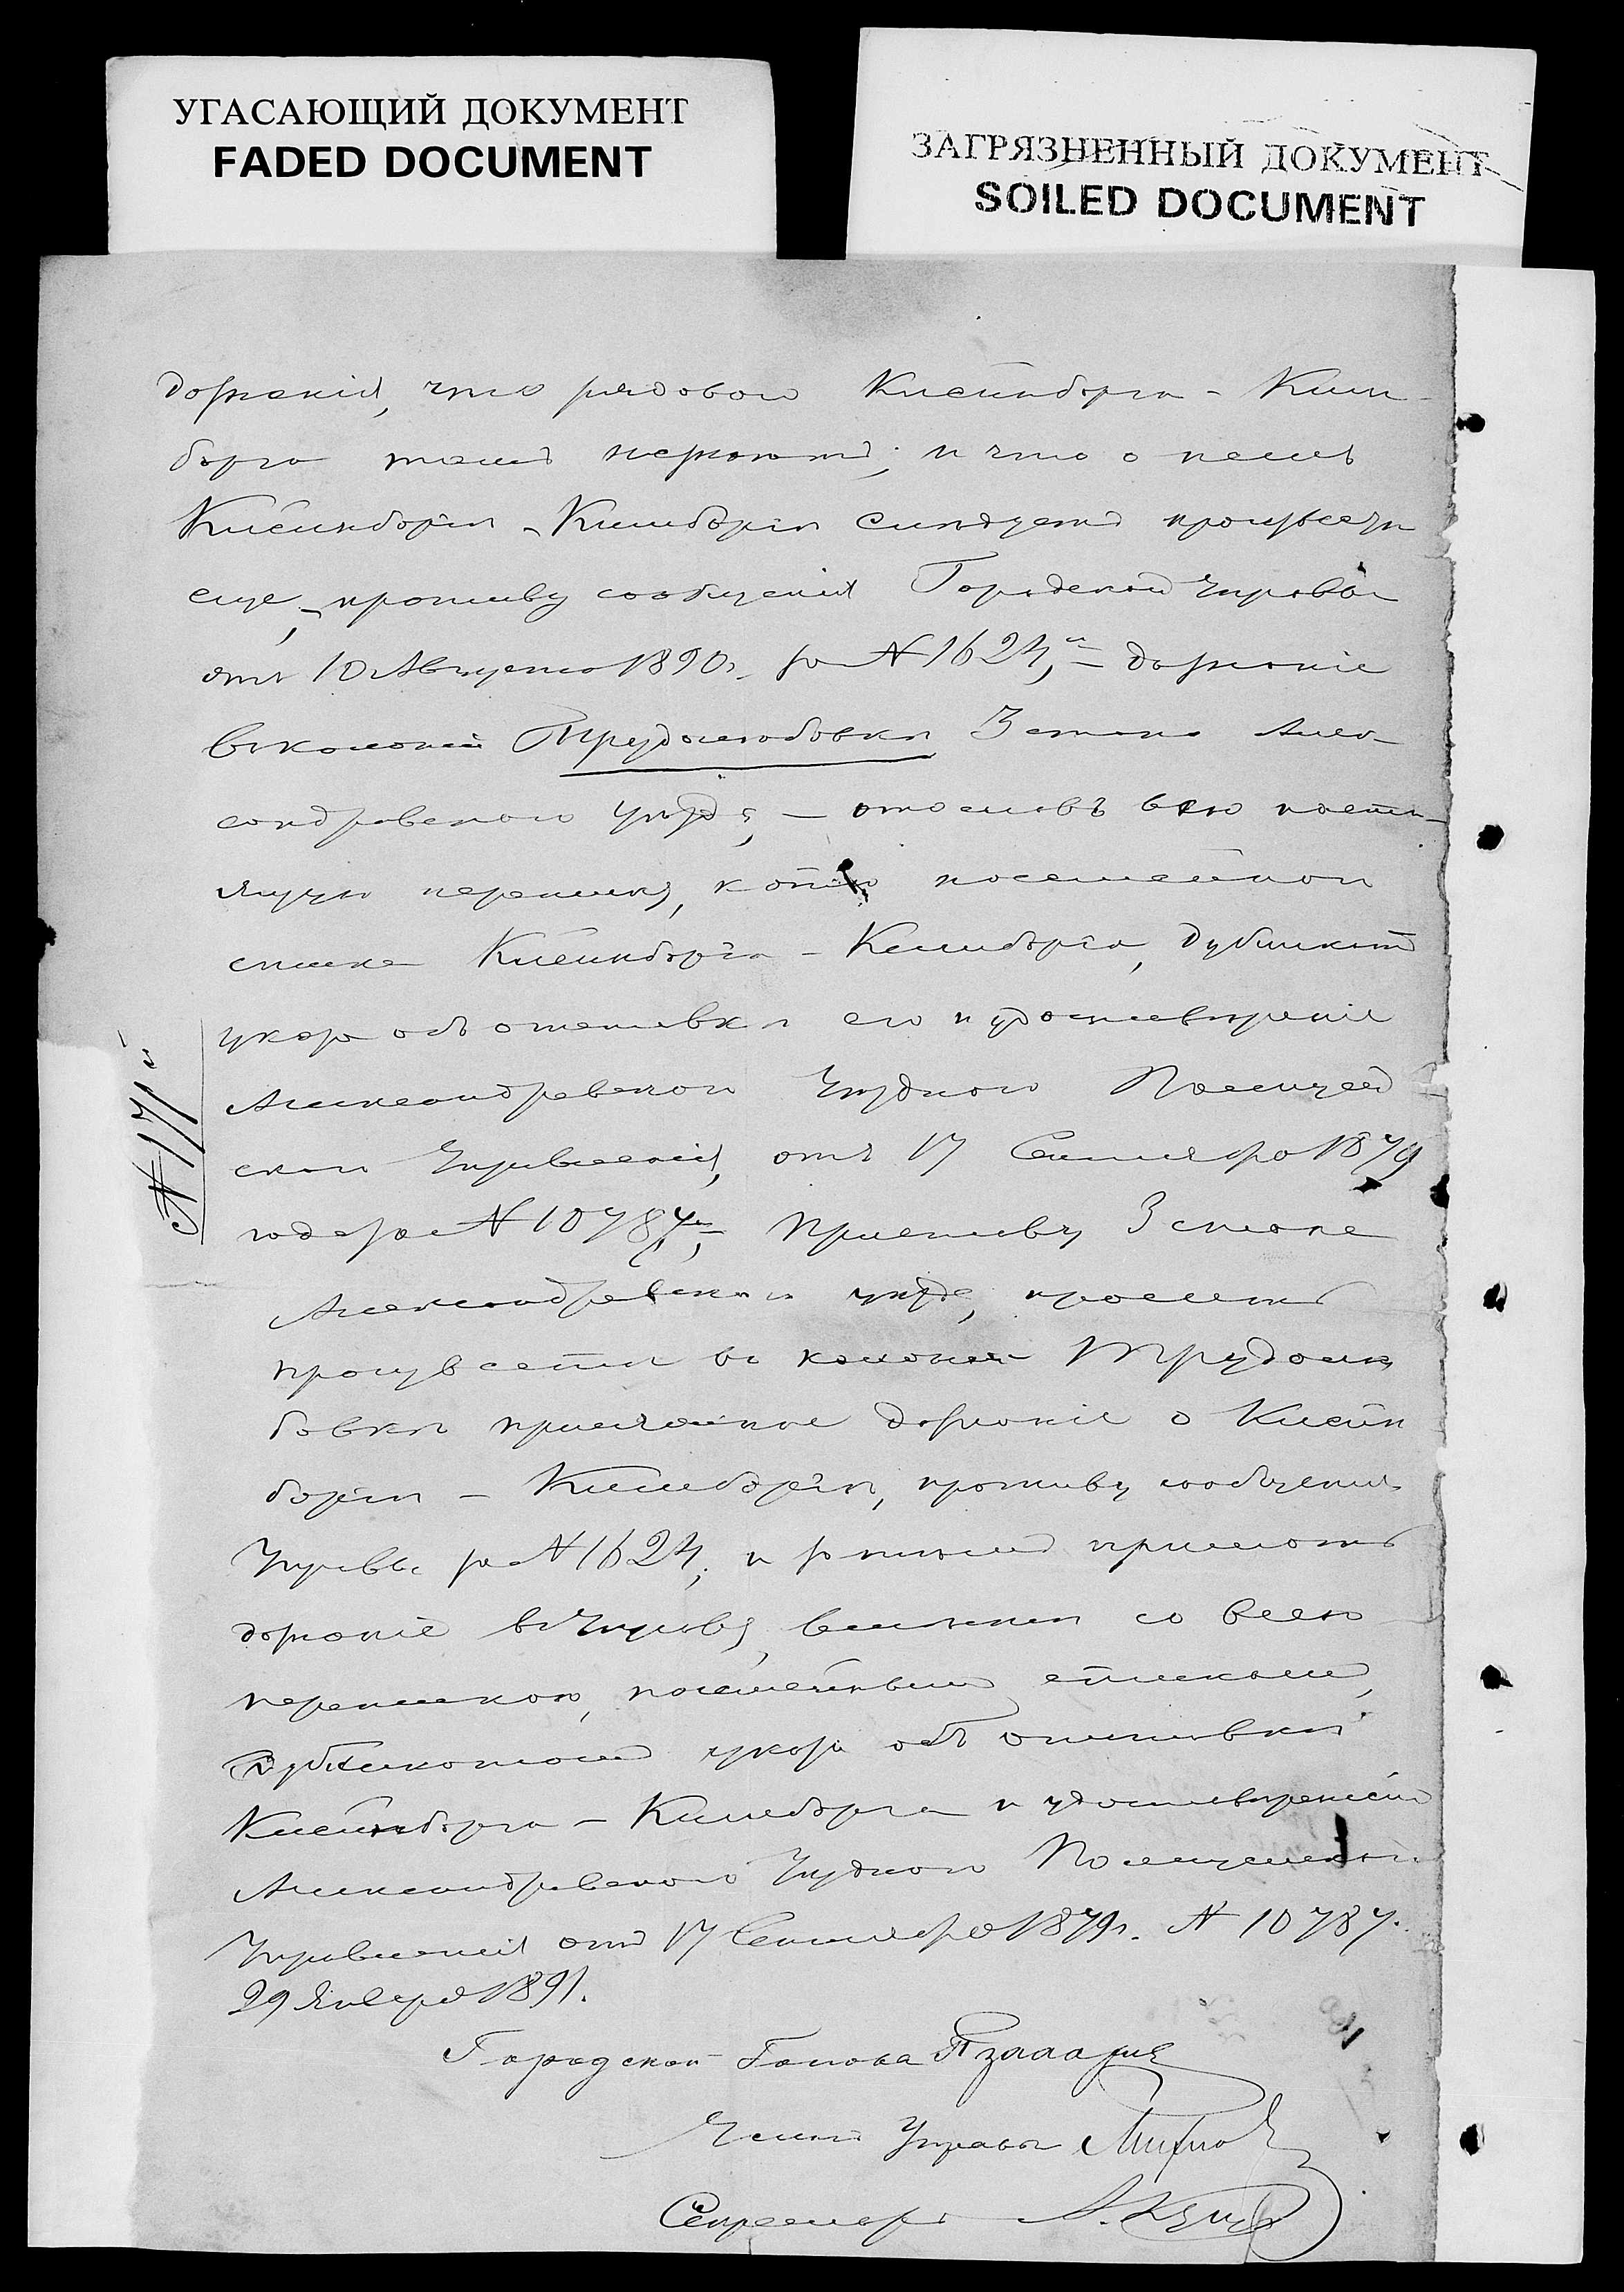 УГАСАЮЩИЙ ДОКУМЕНТ
FADED DOCUMENT
ЗАГРЯЗНЕННЫЙ ДОКУМЕНТ
SOILED DOCUMENT
дознанія, что рядового Клейнборга - Клим-
борга тамъ незнаютъ; и что о немъ
Клейнборгѣ - Климборгѣ слѣдуетъ произвести
еще, противу сообщенія Городской Управы
отъ 10 Августа 1890 г. за № 1624, дознаніе
въ колоніи Трудолюбовкѣ 3 стана Алек-
сандровскаго уѣзда, — отославъ всю насто-
ящую переписку, копію посемейнаго
списка Клейнборга - Климборга, дубликатъ
указа объ отставкѣ его и удостовѣреніе
Александровскаго Уѣзднаго Полицей-
скаго Управленія, отъ 17 Сентября 1879
года за № 10787, Приставу 3 стана
Александровскаго уѣзда, просить
произвести въ колоніи Трудолю-
бовкѣ дознаніе о Клейн-
боргѣ - Климборгѣ, противу сообщенія
Управы за № 1624; и затѣмъ прислать
дознаніе въ Управу, вмѣстѣ со всею
перепискою, посемейнымъ спискомъ,
дубликатомъ указа объ отставкѣ
Клейнборга - Климборга и удостовѣреніемъ
Александровскаго Уѣзднаго Полицейскаго
Управленія отъ 17 Сентября 1879 г. № 10787.
29 Января 1891.
Городской Голова
Членъ Управы
Секретарь
№ 171